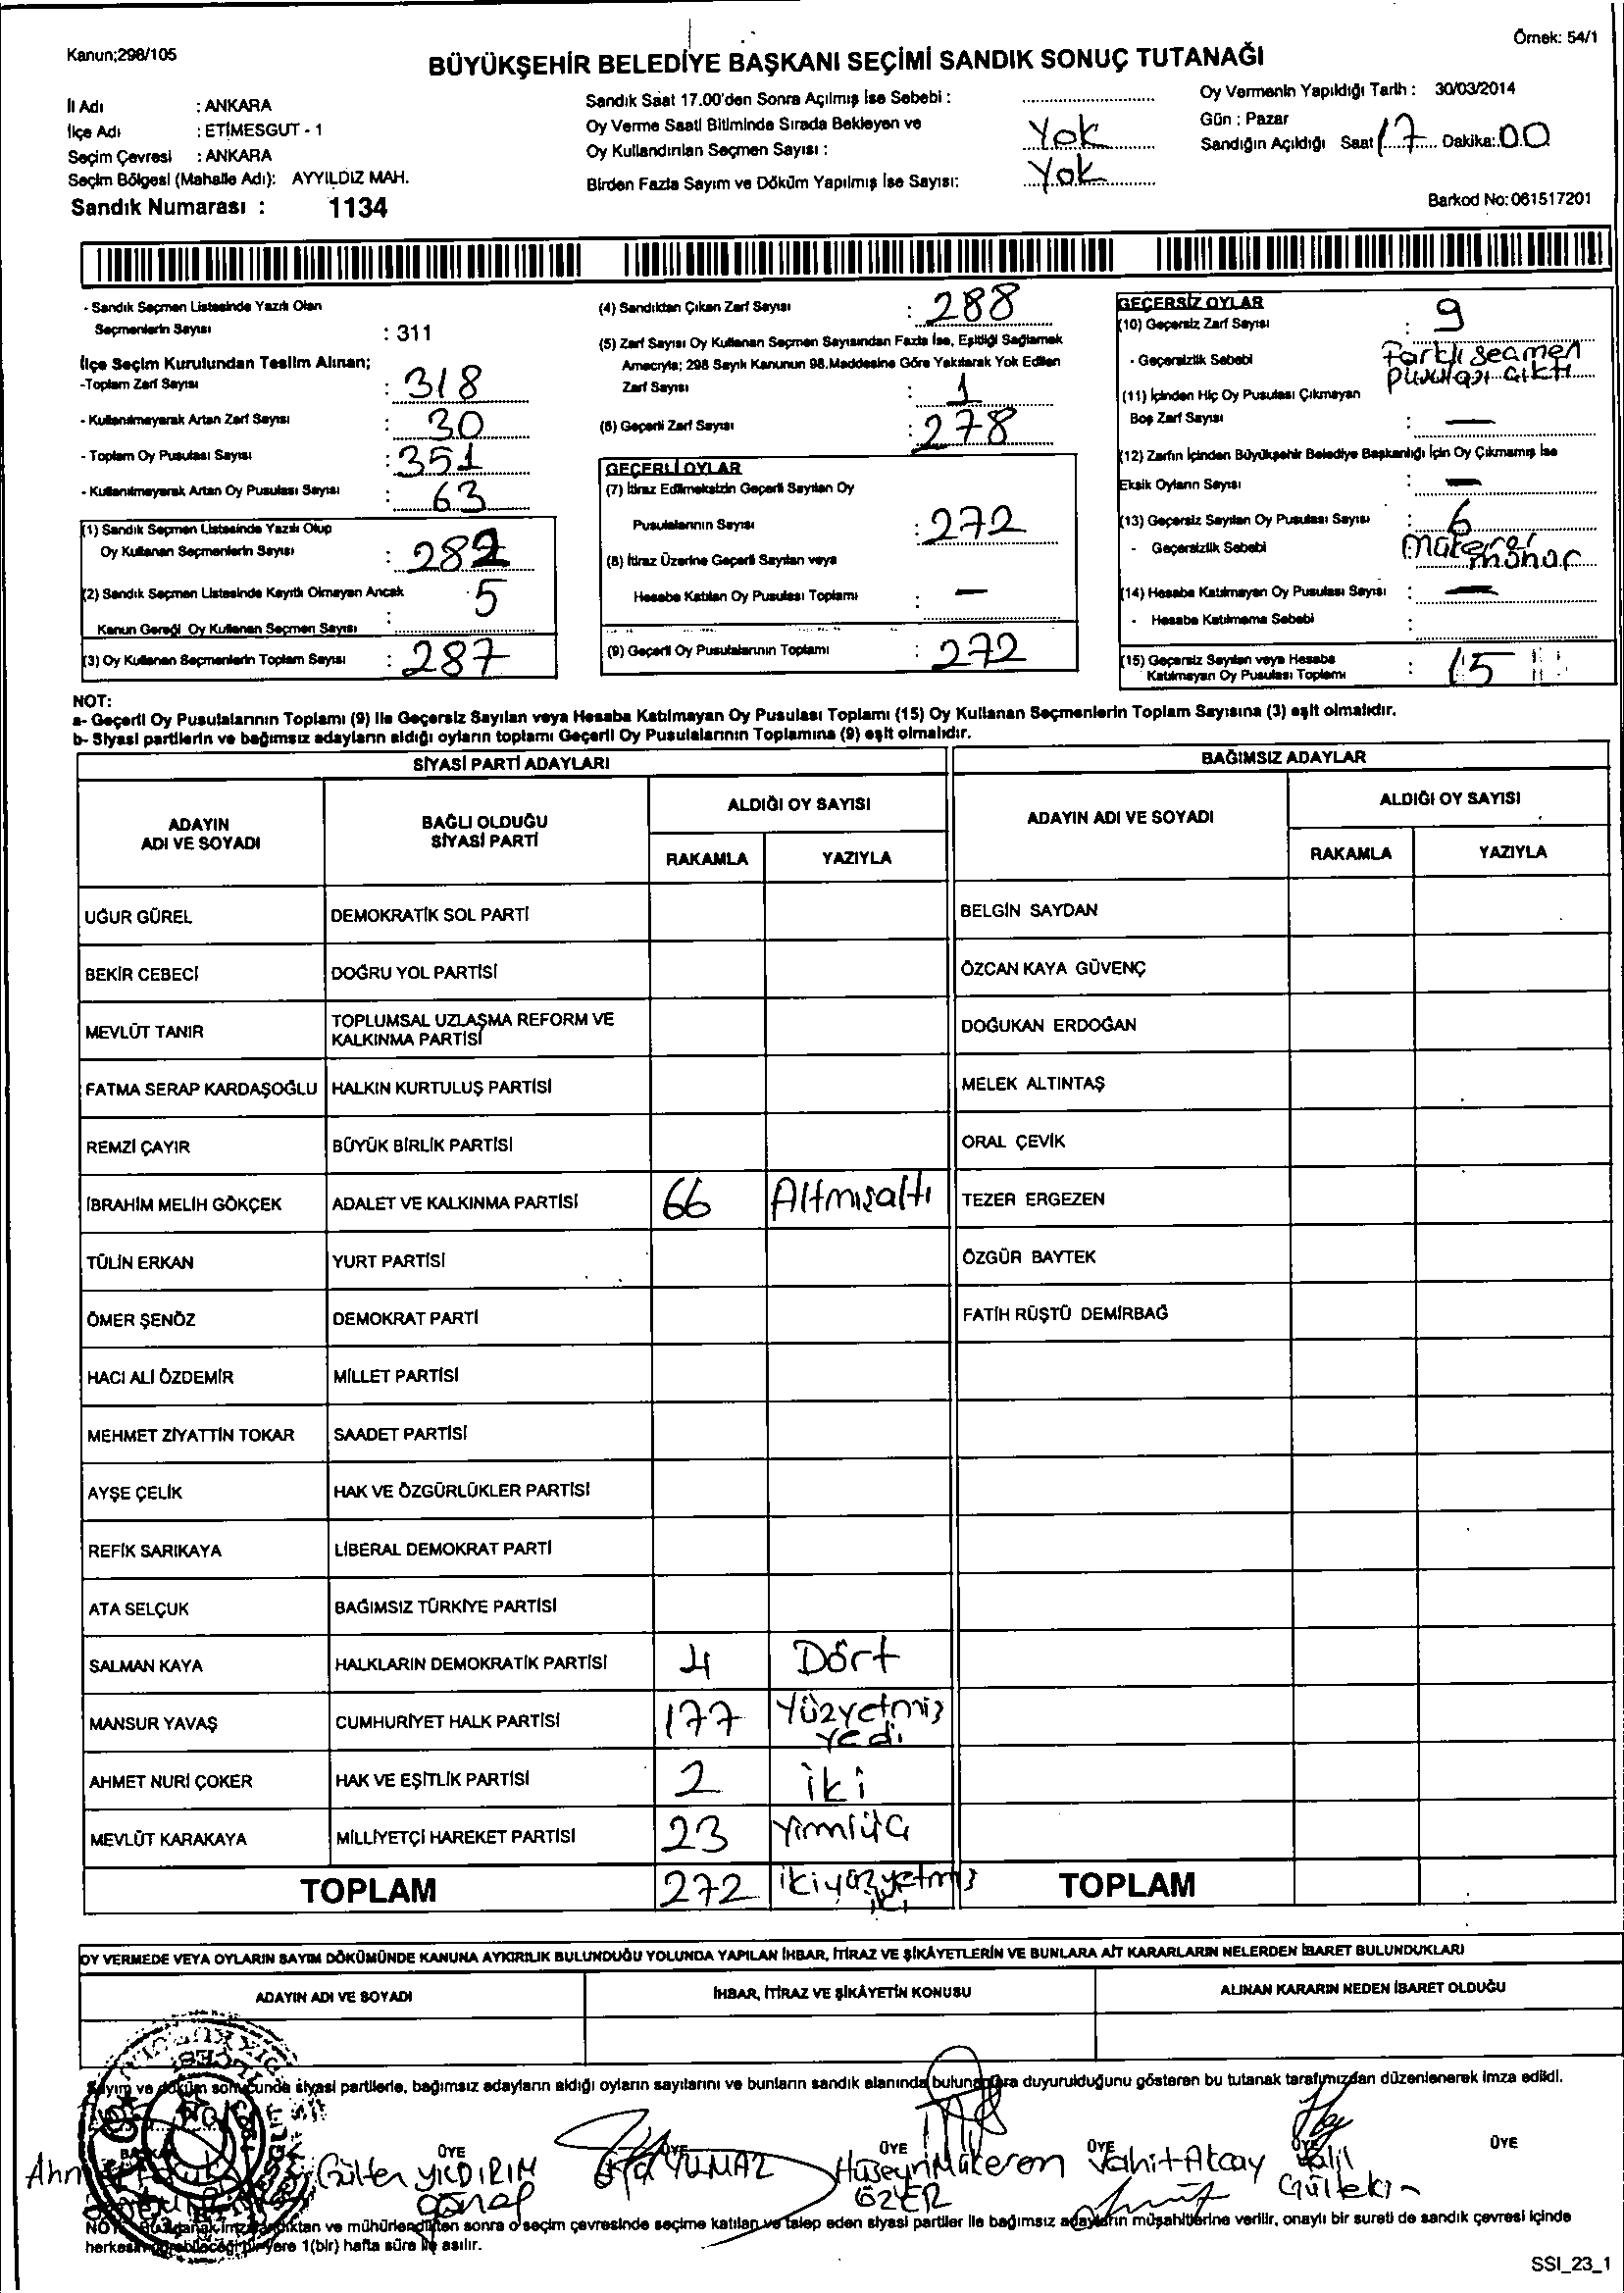 Kanun;298/105
Örnek: 54/1
BÜYÜKŞEHİR BELEDİYE BAŞKANI SEÇİMİ SANDIK SONUÇ TUTANAĞI
İl Adı : ANKARA
İlçe Adı : ETİMESGUT - 1
Seçim Çevresi : ANKARA
Seçim Bölgesi (Mahalle Adı): AYYILDIZ MAH.
Sandık Numarası : 1134
Sandık Saat 17.00'den Sonra Açılmış İse Sebebi :
Oy Verme Saati Bitiminde Sırada Bekleyen ve
Oy Kullandırılan Seçmen Sayısı : Yok
Birden Fazla Sayım ve Döküm Yapılmış İse Sayısı: Yok
Oy Vermenin Yapıldığı Tarih : 30/03/2014
Gün : Pazar
Sandığın Açıldığı Saat 17 Dakika: 00
Barkod No: 061517201
- Sandık Seçmen Listesinde Yazılı Olan
Seçmenlerin Sayısı : 311
İlçe Seçim Kurulundan Teslim Alınan;
-Toplam Zarf Sayısı : 318
- Kullanılmayarak Artan Zarf Sayısı : 30
- Toplam Oy Pusulası Sayısı : 351
- Kullanılmayarak Artan Oy Pusulası Sayısı : 63
(1) Sandık Seçmen Listesinde Yazılı Olup
Oy Kullanan Seçmenlerin Sayısı : 282
(2) Sandık Seçmen Listesinde Kayıtlı Olmayan Ancak
Kanun Gereği Oy Kullanan Seçmen Sayısı : 5
(3) Oy Kullanan Seçmenlerin Toplam Sayısı : 287
(4) Sandıktan Çıkan Zarf Sayısı : 288
(5) Zarf Sayısı Oy Kullanan Seçmen Sayısından Fazla İse, Eşitliği Sağlamak
Amacıyla; 298 Sayılı Kanunun 98.Maddesine Göre Yakılarak Yok Edilen
Zarf Sayısı : 1
(6) Geçerli Zarf Sayısı : 278
GEÇERLİ OYLAR
(7) İtiraz Edilmeksizin Geçerli Sayılan Oy
Pusulalarının Sayısı : 272
(8) İtiraz Üzerine Geçerli Sayılan veya
Hesaba Katılan Oy Pusulası Toplamı : —
(9) Geçerli Oy Pusulalarının Toplamı : 272
GEÇERSİZ OYLAR
(10) Geçersiz Zarf Sayısı : 9
- Geçersizlik Sebebi Farklı seçmen
pusulası çıktı
(11) İçinden Hiç Oy Pusulası Çıkmayan
Boş Zarf Sayısı : —
(12) Zarfın İçinden Büyükşehir Belediye Başkanlığı İçin Oy Çıkmamış İse
Eksik Oyların Sayısı : —
(13) Geçersiz Sayılan Oy Pusulası Sayısı : 6
- Geçersizlik Sebebi
(14) Hesaba Katılmayan Oy Pusulası Sayısı : —
- Hesaba Katılmama Sebebi :
(15) Geçersiz Sayılan veya Hesaba
Katılmayan Oy Pusulası Toplamı : 15
NOT:
a- Geçerli Oy Pusulalarının Toplamı (9) ile Geçersiz Sayılan veya Hesaba Katılmayan Oy Pusulası Toplamı (15) Oy Kullanan Seçmenlerin Toplam Sayısına (3) eşit olmalıdır.
b- Siyasi partilerin ve bağımsız adayların aldığı oyların toplamı Geçerli Oy Pusulalarının Toplamına (9) eşit olmalıdır.
SİYASİ PARTİ ADAYLARI BAĞIMSIZ ADAYLAR
ADAYIN ADI VE SOYADI BAĞLI OLDUĞU SİYASİ PARTİ ALDIĞI OY SAYISI ADAYIN ADI VE SOYADI ALDIĞI OY SAYISI
RAKAMLA YAZIYLA RAKAMLA YAZIYLA
UĞUR GÜREL DEMOKRATİK SOL PARTİ BELGİN SAYDAN
BEKİR CEBECİ DOĞRU YOL PARTİSİ ÖZCAN KAYA GÜVENÇ
MEVLÜT TANIR TOPLUMSAL UZLAŞMA REFORM VE KALKINMA PARTİSİ DOĞUKAN ERDOĞAN
FATMA SERAP KARDAŞOĞLU HALKIN KURTULUŞ PARTİSİ MELEK ALTINTAŞ
REMZİ ÇAYIR BÜYÜK BİRLİK PARTİSİ ORAL ÇEVİK
İBRAHİM MELİH GÖKÇEK ADALET VE KALKINMA PARTİSİ 66 Altmışaltı TEZER ERGEZEN
TÜLİN ERKAN YURT PARTİSİ ÖZGÜR BAYTEK
ÖMER ŞENÖZ DEMOKRAT PARTİ FATİH RÜŞTÜ DEMİRBAĞ
HACI ALİ ÖZDEMİR MİLLET PARTİSİ
MEHMET ZİYATTİN TOKAR SAADET PARTİSİ
AYŞE ÇELİK HAK VE ÖZGÜRLÜKLER PARTİSİ
REFİK SARIKAYA LİBERAL DEMOKRAT PARTİ
ATA SELÇUK BAĞIMSIZ TÜRKİYE PARTİSİ
SALMAN KAYA HALKLARIN DEMOKRATİK PARTİSİ 4 Dört
MANSUR YAVAŞ CUMHURİYET HALK PARTİSİ 177 Yüzyetmiş yedi
AHMET NURİ ÇOKER HAK VE EŞİTLİK PARTİSİ 2 iki
MEVLÜT KARAKAYA MİLLİYETÇİ HAREKET PARTİSİ 23 Yirmiüç
TOPLAM 272 ikiyüzyetmiş iki TOPLAM
OY VERMEDE VEYA OYLARIN SAYIM DÖKÜMÜNDE KANUNA AYKIRILIK BULUNDUĞU YOLUNDA YAPILAN İHBAR, İTİRAZ VE ŞİKÂYETLERİN VE BUNLARA AİT KARARLARIN NELERDEN İBARET BULUNDUKLARI
ADAYIN ADI VE SOYADI İHBAR, İTİRAZ VE ŞİKÂYETİN KONUSU ALINAN KARARIN NEDEN İBARET OLDUĞU
Sayım ve döküm sonucunda siyasi partilerle, bağımsız adayların aldığı oyların sayılarını ve bunların sandık alanında bulunanlara duyurulduğunu gösteren bu tutanak tarafımızdan düzenlenerek imza edildi.
BAŞKAN ÜYE ÜYE ÜYE ÜYE ÜYE ÜYE
Gülten YILDIRIM YILMAZ Hüseyin Mükerem ÖZER Vahit Akçay Halil Gültekin
NOT: Bu tutanak imzalandıktan ve mühürlendikten sonra o seçim çevresinde seçime katılan ve talep eden siyasi partiler ile bağımsız adayların müşahitlerine verilir, onaylı bir sureti de sandık çevresi içinde
herkesin görebileceği bir yere 1(bir) hafta süre ile asılır.
SSI_23_1